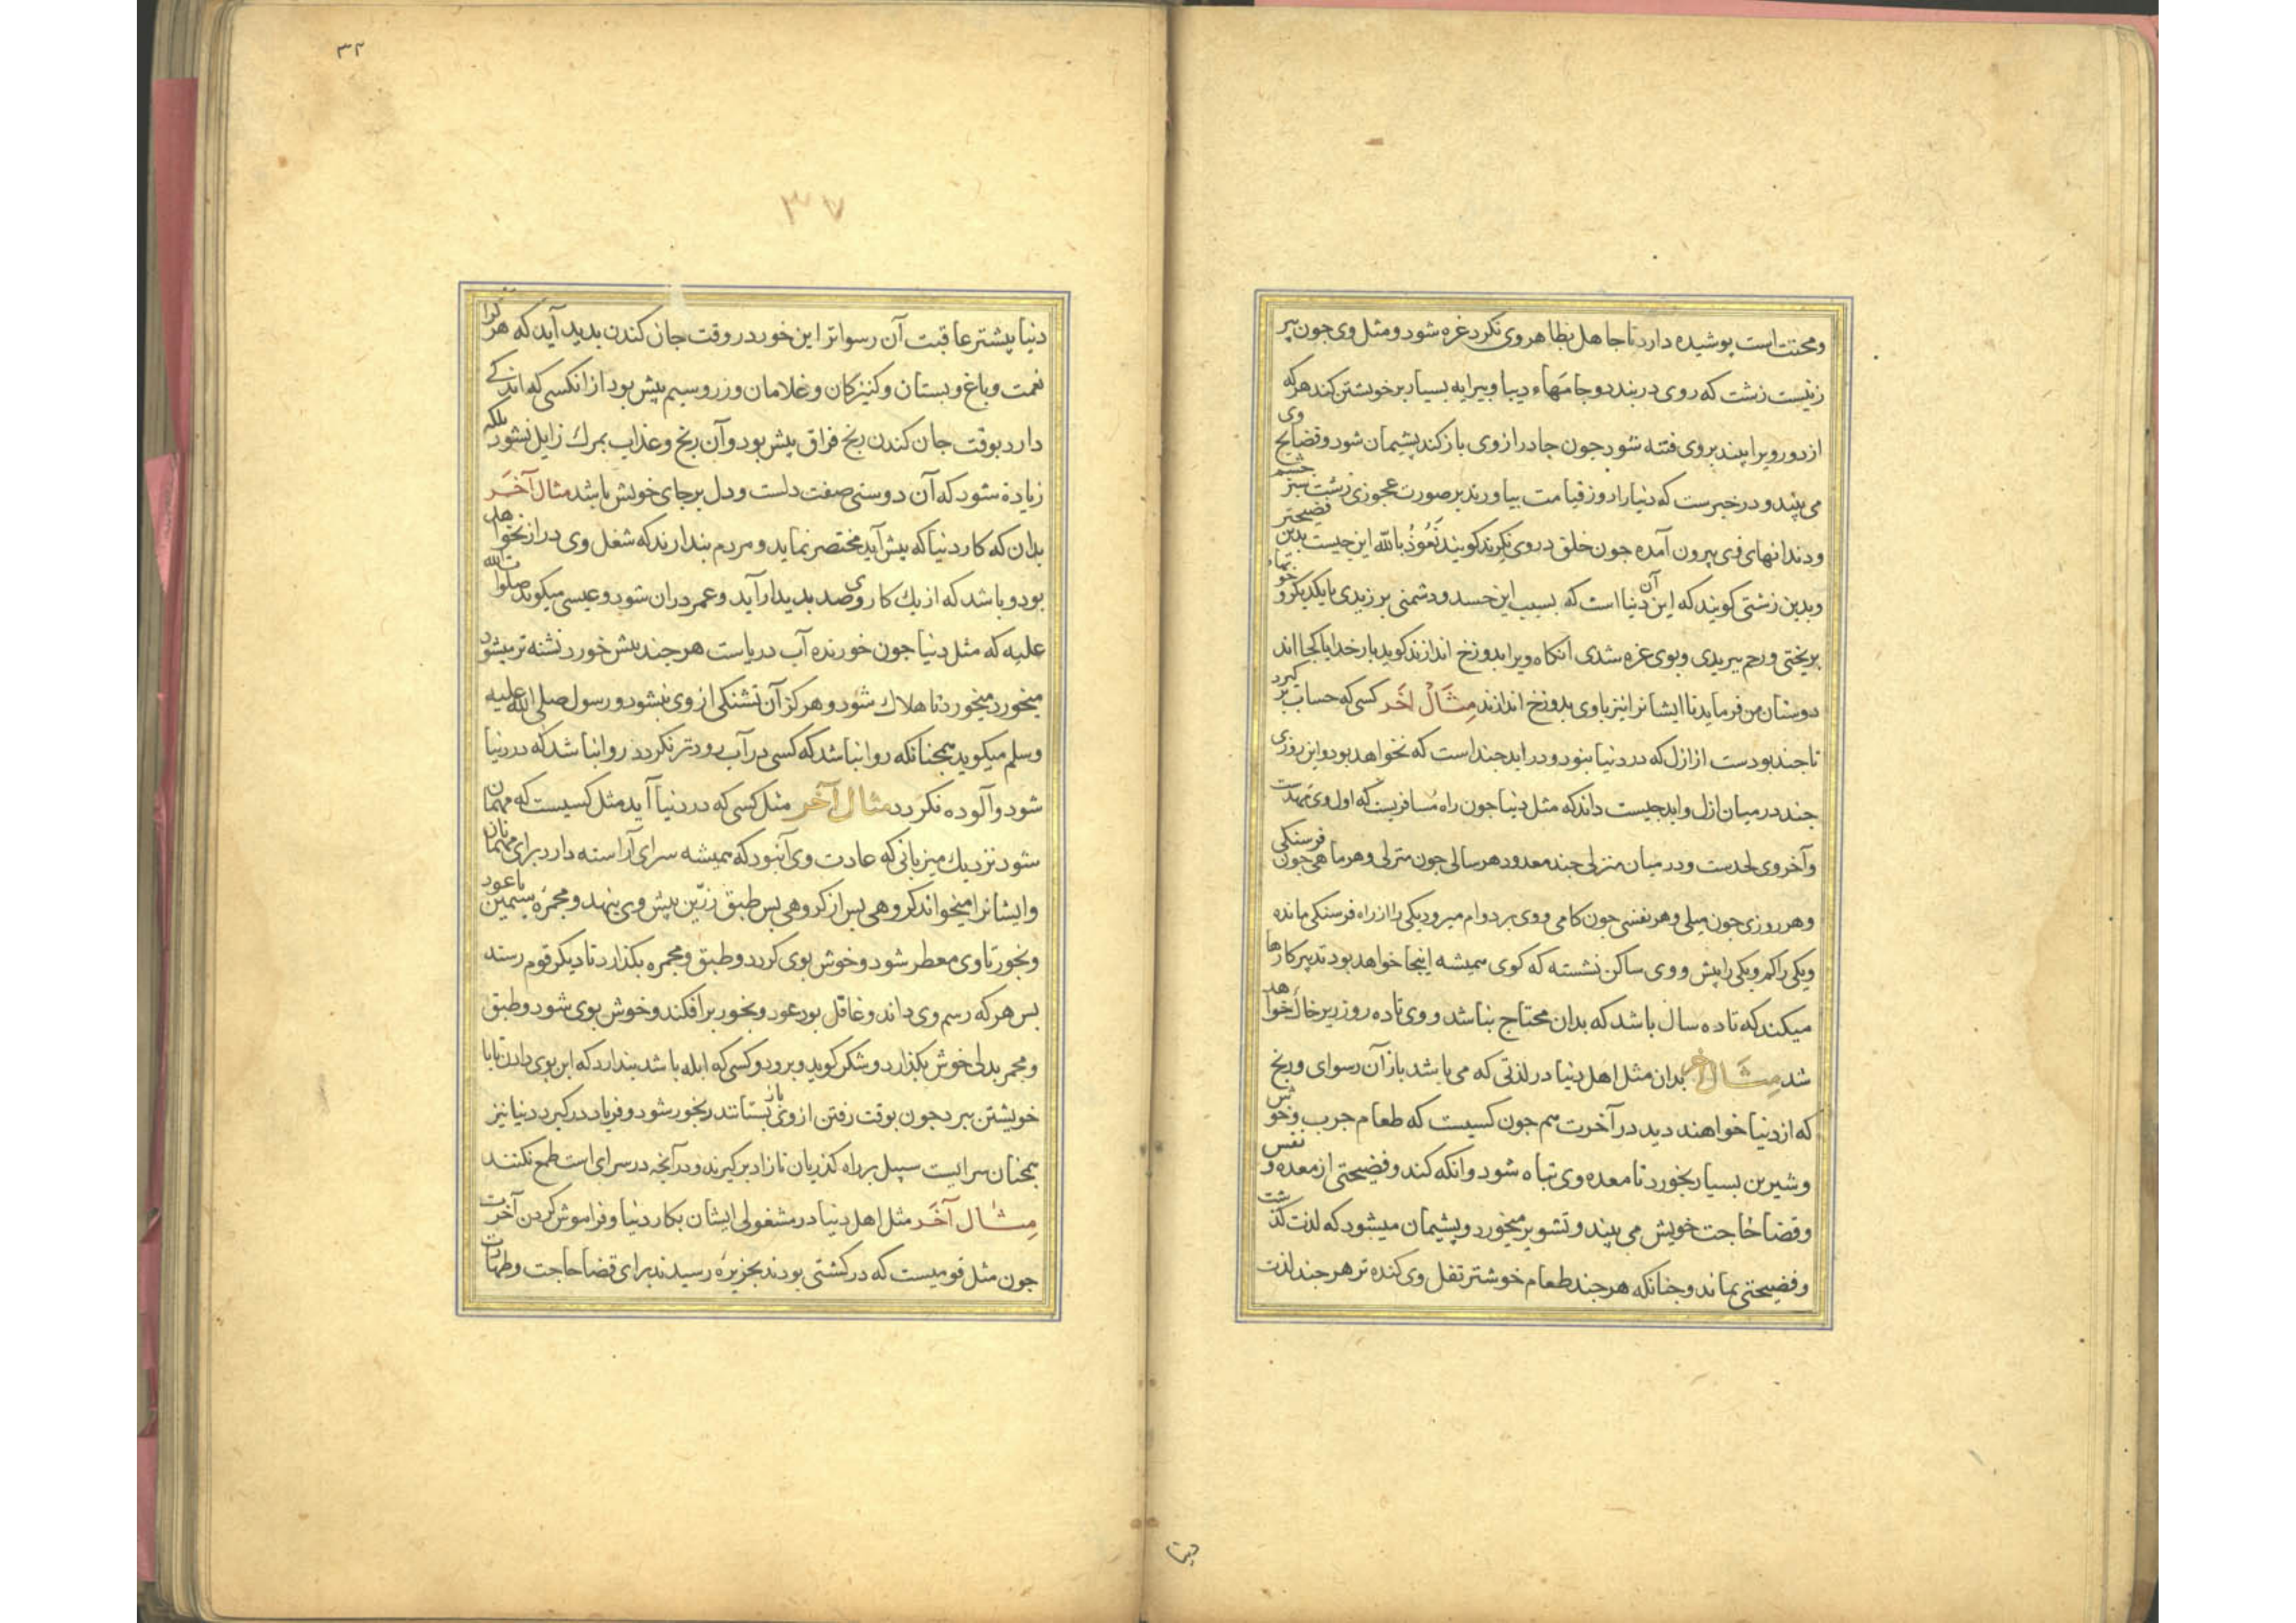 ومحنتست پوشیده دارد تا جاهل بظاهر وی نکرد غره شود ومثل وی جون پیر
زنیست زشت که روی دربندد وجامهاء دیبا وپیرایه بسیار برخویشتن کند هرکه
از دور ویرا بیند بروی فتنه شود جون جادر از وی بازکند پشیمان شود وفضایح وی
می بیند ودر خبرست که دنیا را روز قیامت بیاورند برصورت عجوزی زشت سبز جشم
ودندانهای وی بیرون آمده جون خلق در وی نکرند کویند نعوذ بالله این جیست بدین فضیحتی
وبدین زشتی کویند که این آن دنیا است که بسبب این حسد ودشمنی برزیدی با یکدیکر و
بریختی ورحم ببریدی وبوی غره شدی انکاه ویرا بدوزخ اندازند کوید بار خدایا کجا اند
دوستان من فرماید تا ایشانرا نیز با وی بدوزخ اندازند مثال آخر کسی که حساب بر کیرد
تا جند بودست از ازل که در دنیا نبود ودر ابد جنداست که نخواهد بود واین روزی
جند در میان ازل وابد جیست داند که مثل دنیا جون راه مسافریست که اول وی مهدست
وآخر وی لحدست ودر میان منزلی جند معدود هر سالی جون منزلی وهر ماهی جون فرسنکی
وهر روزی جون میلی وهر نفسی جون کامی ووی بر دوام میرود یکی را از راه فرسنکی مانده
ویکی را کم ویکی را بیش ووی ساکن نشسته که کوی همیشه اینجا خواهد بود تدبیر کارها
میکند که تا ده سال باشد که بدان محتاج نباشد ووی تا ده روز زیر خاک خواهد
شد مثال آخر بدان مثل اهل دنیا در لذتی که می یابند باز آن رسوای ورنج
که از دنیا خواهند دید در آخرت هم جون کسیست که طعام جرب وخوش
وشیرین بسیار بخورد تا معده وی تباه شود وانکه کند وفضیحتی از معده ونفس
وقضا حاجت خویش می بیند وتشویر میخورد وپشیمان میشود که لذت کذشت
وفضیحتی بماند وجنانکه هرجند طعام خوشتر تفل وی کنده تر هرجند لذت
دنیا
۳۲
۳۷
دنیا بیشتر عاقبت آن رسواتر این خود در وقت جان کندن بدید آید که هر کرا
نعمت وباغ وبستان وکنیزکان وغلامان وزر وسیم بیش بود از انکسی که اندکی
دارد بوقت جان کندن رنج فراق بیش بود وآن رنج وعذاب بمرک زایل نشود بلکه
زیاده شود که آن دوستی صفت دلست ودل برجای خویش باشد مثال آخر
بدان که کار دنیا که بیش آید مختصر نماید ومردم بندارند که شغل وی دراز نخواهد
بود وباشد که از یک کار وی صد بدیدار آید وعمر در آن شود وعیسی میکوید صلوات الله
علیه که مثل دنیا جون خورنده آب دریاست هرجند بیش خورد تشنه تر میشود
میخورد میخورد تا هلاک شود وهرکز آن تشنکی از وی نشود ورسول صلی الله علیه
وسلم میکوید همجنانکه روا نباشد که کسی در آب رود تر نکردد روا نباشد که در دنیا
شود وآلوده نکردد مثال آخر مثل کسی که در دنیا آید مثل کسیست که مهمان
شود نزدیک میزبانی که عادت وی آنبود که همیشه سرای آراسته دارد برای مهمانان
وایشانرا میخواند کروهی بس از کروهی بس طبق زرین پیش وی بنهد ومجمره سیمین با عود
وبخور تا وی معطر شود وخوش بوی کردد وطبق ومجمره بکذارد تا دیکر قوم رسند
بس هرکه رسم وی داند وعاقل بود عود وبخور برافکند وخوش بوی شود وطبق
ومجمر بدلی خوش بکذارد وشکر کوید وبرود وکسی که ابله باشد بندارد که این بوی دادن تا با
خویشتن ببرد جون بوقت رفتن از وی باز بستانند رنجور شود وفریاد درکیرد دنیا نیز
همجنان سرایست سبیل بر راه کذریان تا زاد برکیرند ودر آنجه در سرای است طمع نکنند
مثال آخر مثل اهل دنیا در مشغولی ایشان بکار دنیا وفراموش کردن آخرت
جون مثل قومیست که در کشتی بودند بجزیره رسیدند برای قضا حاجت وطهارت